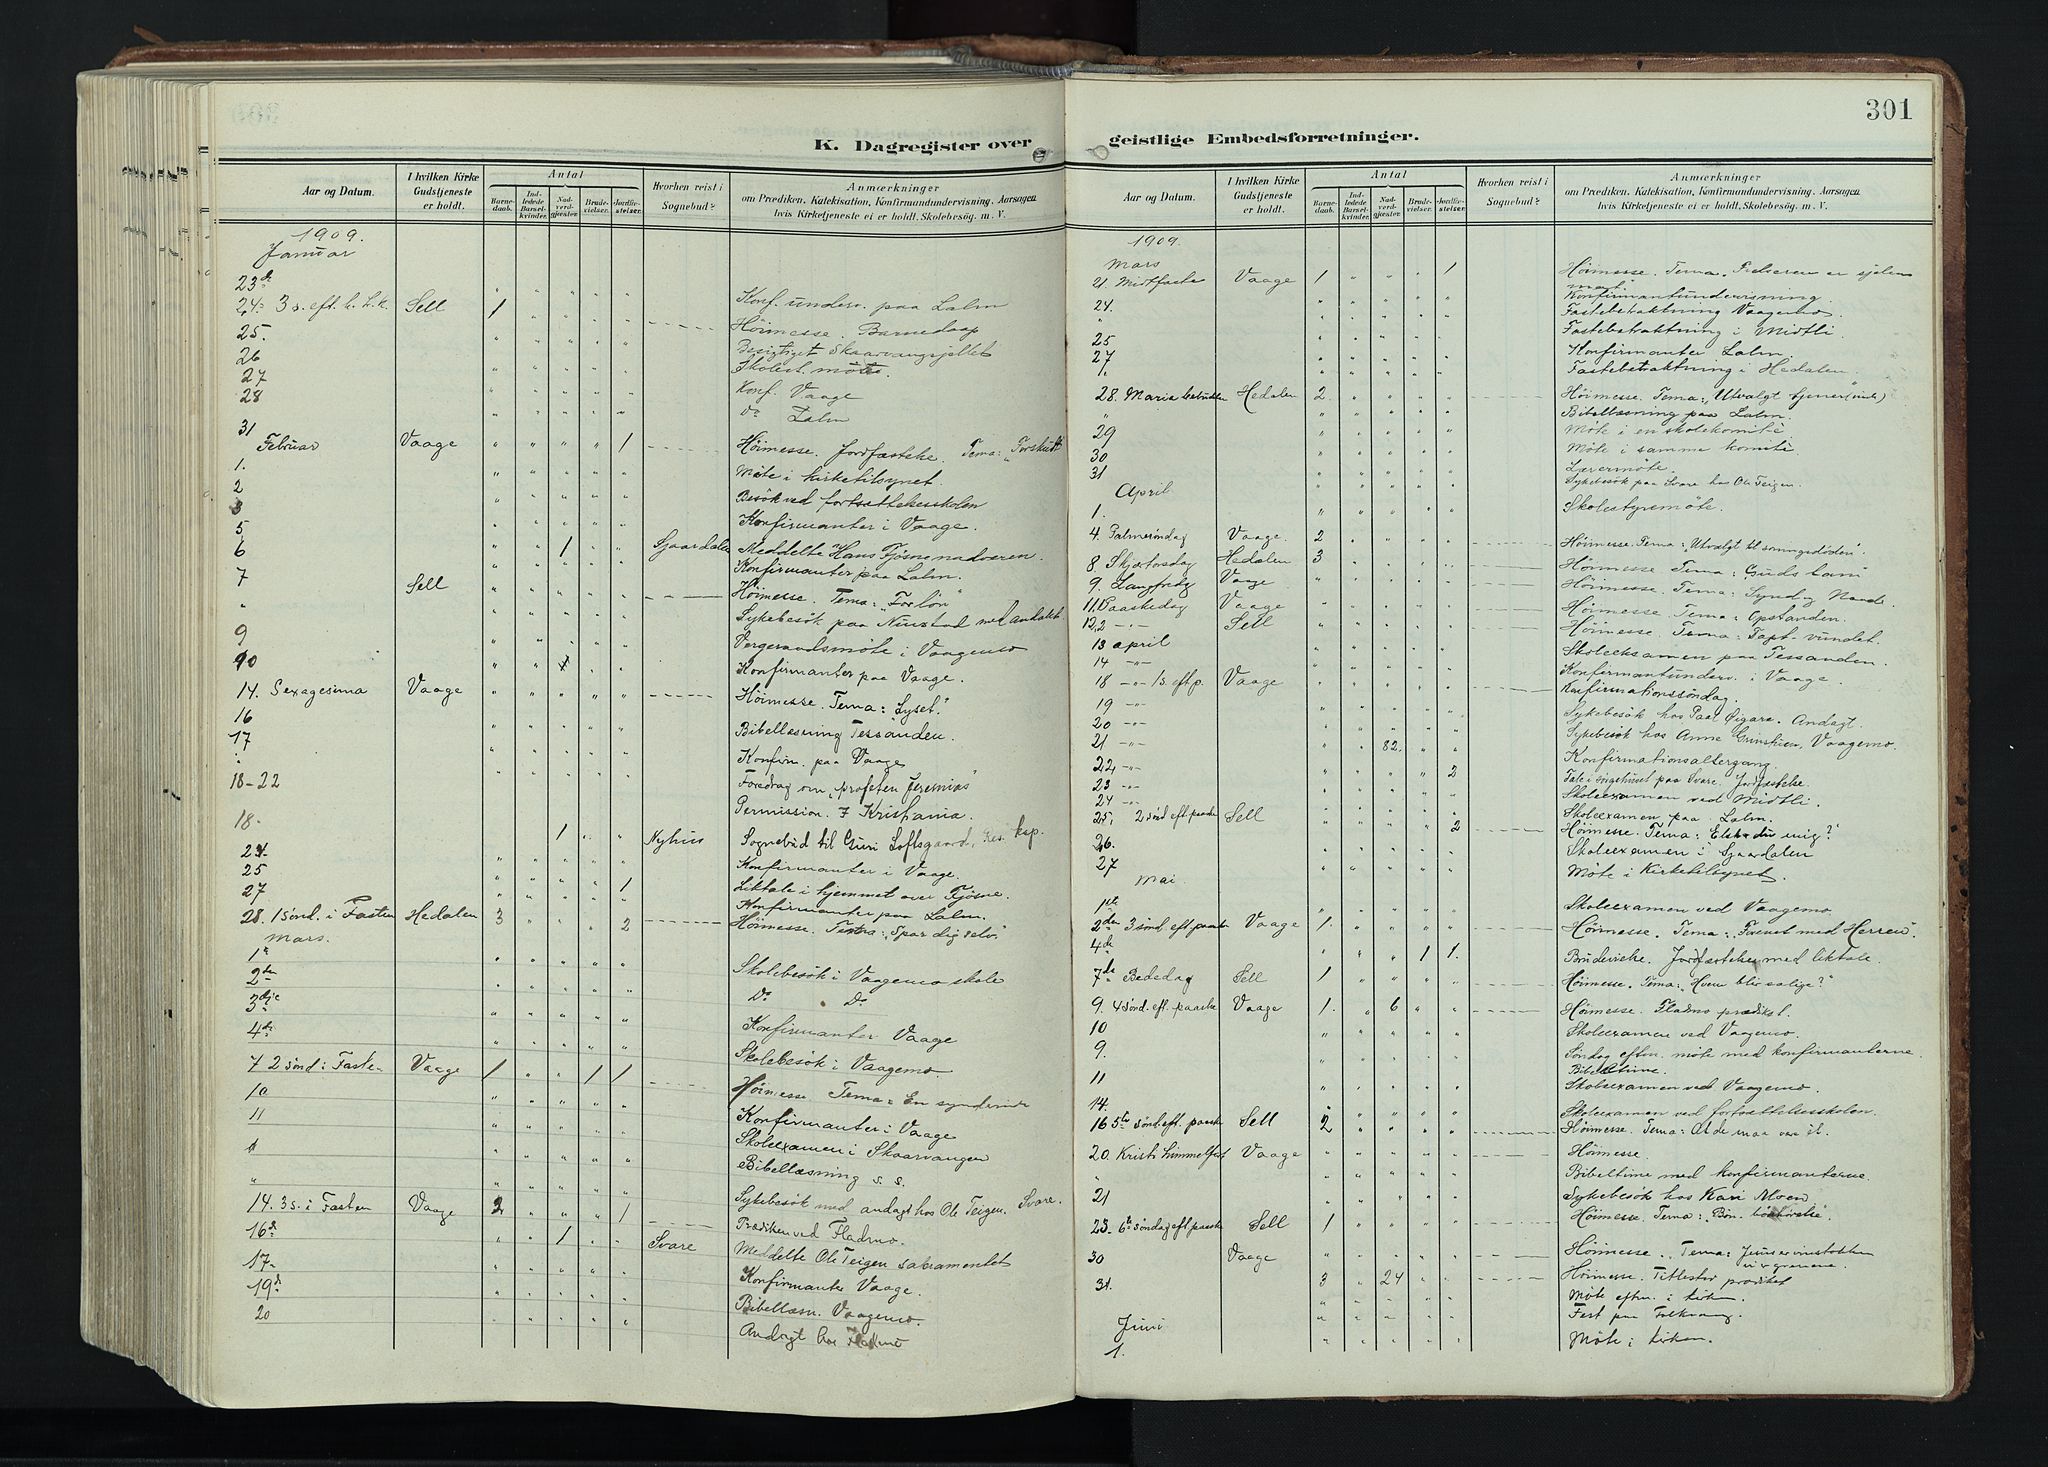 301
K. Dagregister over geistlige Embedsforretninger.
Aar og Datum. I hvilken Kirke Gudstjeneste er holdt. Antal Barnedaab. Indledede Barselkvinder. Nadverdgjester. Brudevielser. Jordfæstelser. Hvorhen reist i Sognebud? Anmærkninger om Prædiken, Katekisation, Konfirmandundervisning, Aarsagen hvis Kirketjeneste ei er holdt, Skolebesög, m. V.
1909.
Januar
23de
24. 3 s. eft. h. 3. k. Sell 1 Konf. underv. paa Lalm
25. Höimesse. Barnedaap
26 Besigtiget Skaarvangsjellet
27 Skolest. möte
28 Konf. Vaage
31 do Lalm
Februar Vaage 1 Höimesse. Jordfæstelse. Tema:
1. Möte i kirketilsynet.
2 Besök ved fortsættelsesskolen
3 Konfirmanter i Vaage.
5
6 1 Sjaardalen Meddelte Hans Fjösne nadveren.
7 Konfirmanter paa Lalm.
" Sell Höimesse. Tema: "For lön"
Sykebesök paa Niustad med andakt.
9 Vergeraadsmöte i Vaagemo
10 Konfirmanter paa Vaage.
14. Sexagesima Vaage Höimesse. Tema: "Lyset."
16
17 Bibellæsning Tessanden.
" Konfirm. paa Vaage
18-22 Foredrag om "profeten Jeremias"
18. Permission. I Kristiania.
24. 1 Nyhus Sognebud til Guri Loftsgaard, Res. kap.
25 Konfirmanter i Vaage.
27 1 Liktale i hjemmet over Fjösne.
Konfirmanter paa Lalm.
28. 1 sönd. i Fasten Hedalen 3 2 Höimesse. Tema: "Spar dig selv"
Mars.
1ste
2den Skolebesök i Vaagemo skole
3dje Do Do
4de Konfirmanter Vaage
7 2 sönd i Fasten Vaage 1 1 1 Skolebesök i Vaagemo
10 Höimesse Tema: En synderinde
11 Konfirmanter i Vaage
Skoleexamen i Skaarvangen
" Bibellæsning s. s.
14. 3 s. i Fasten Vaage 2 1 Sykebesök med andagt hos Ole Teigen, Svare.
16de 1 Svare Prædiken ved Fladmo.
17. Meddelte Ole Teigen sakramentet
19de Konfirmanter Vaage.
20 Bibellæsn. Vaagemo.
Andagt hos Fladmo
Aar og Datum. I hvilken Kirke Gudstjeneste er holdt. Antal Barnedaab. Indledede Barselkvinder. Nadverdgjester. Brudevielser. Jordfæstelser. Hvorhen reist i Sognebud? Anmærkninger om Prædiken, Katekisation, Konfirmandundervisning, Aarsagen hvis Kirketjeneste ei er holdt, Skolebesög, m. V.
1909.
Mars
21. Midtfaste Vaage 1 1 Höimesse. Tema. Frelseren er sjelens mat"
24. Konfirmantundervisning.
" Fastebetraktning Vaagemo.
25 Fastebetraktning i Midtli
27 Konfirmanter Lalm.
" Fastebetraktning i Hedalen
28. Maria bebudelse Hedalen 2 Höimesse. Tema: "Utvalgt tjener(inde)
" Bibellæsning paa Lalm.
29 Möte i en skolekomité
30 Möte i samme komité.
31 Lærermöte.
April Sykebesök paa Svare hos Ole Teigen.
1. Skolestyremöte.
4. Palmesöndag Vaage. 2 Höimesse. Tema: "Utvalgt til soningsdöden".
8. Skjærtorsdag Hedalen 3 Höimesse Tema: "Guds lam"
9. Langfredag Vaage Höimesse. Tema: Synd og Naade
11. 1 Paaskedag Vaage Höimesse Tema: Opstanden.
12. 2 -"- Sell Höimesse. Tema: Tapt - vundet.
13 april Skoleeksamen paa Tessanden.
14 -"- Konfirmantunderv. i Vaage.
18 -"- 1 s. eft p. Vaage Konfirmationssöndag
19 -"- Sykebesök hos Paal Öigare. Andagt.
20 -"- Sykebesök hos Anne Grinstuen, Vaagemo
21 -"- 82. Konfirmationsaltergang.
22 -"- 2 Tale i sörgehuset paa Svare. Jordfæstelse.
23 -"- Skoleexamen ved Midtli.
24 -"- Skoleexamen paa Lalm.
25. 2 sönd eft. paaske Sell 2 Höimesse. Tema: Elsker du mig?"
26. Skoleexamen i Sjaardalen
27 Möte i Kirketilsynet.
Mai.
1ste Skoleexamen ved Vaagemo.
2den 3 sönd. eft paaske Vaage 1. Höimesse. Tema: "Forenet med Herren".
4de 1 1. Brudevielse. Jordfæstelse med liktale.
7de Bededag Sell 1 Höimesse. Tema: "Hvem blir salige?"
9. 4 sönd. eft. paaske Vaage 1. 6 Höimesse. Fladmo prædiket.
10 Skoleexamen ved Vaagemo.
9. Söndag efterm. möte med konfirmanterne.
Bibeltime.
11 Skoleexamen ved Vaagemo.
14. Skoleexamen ved fortsættelsesskolen.
16 5te sönd. eft. paaske Sell 2 Höimesse. Tema: At de maa være ét.
20. Kristi himmelfart Vaage Höimesse.
" Bibeltime med konfirmanterne
21 Sykebesök hos Kari Moen
23. 6te söndag eft paaske Sell 1 Höimesse. Tema: "Bön. bönhörelse".
30 Vaage Höimesse. Tema: Jesus er vinstokken vi grenene.
31. 3 24 Höimesse. Titlestad prædiket
Möte efterm. i kirken.
Juni Fest paa Folkvang.
1. Möte i kirken.